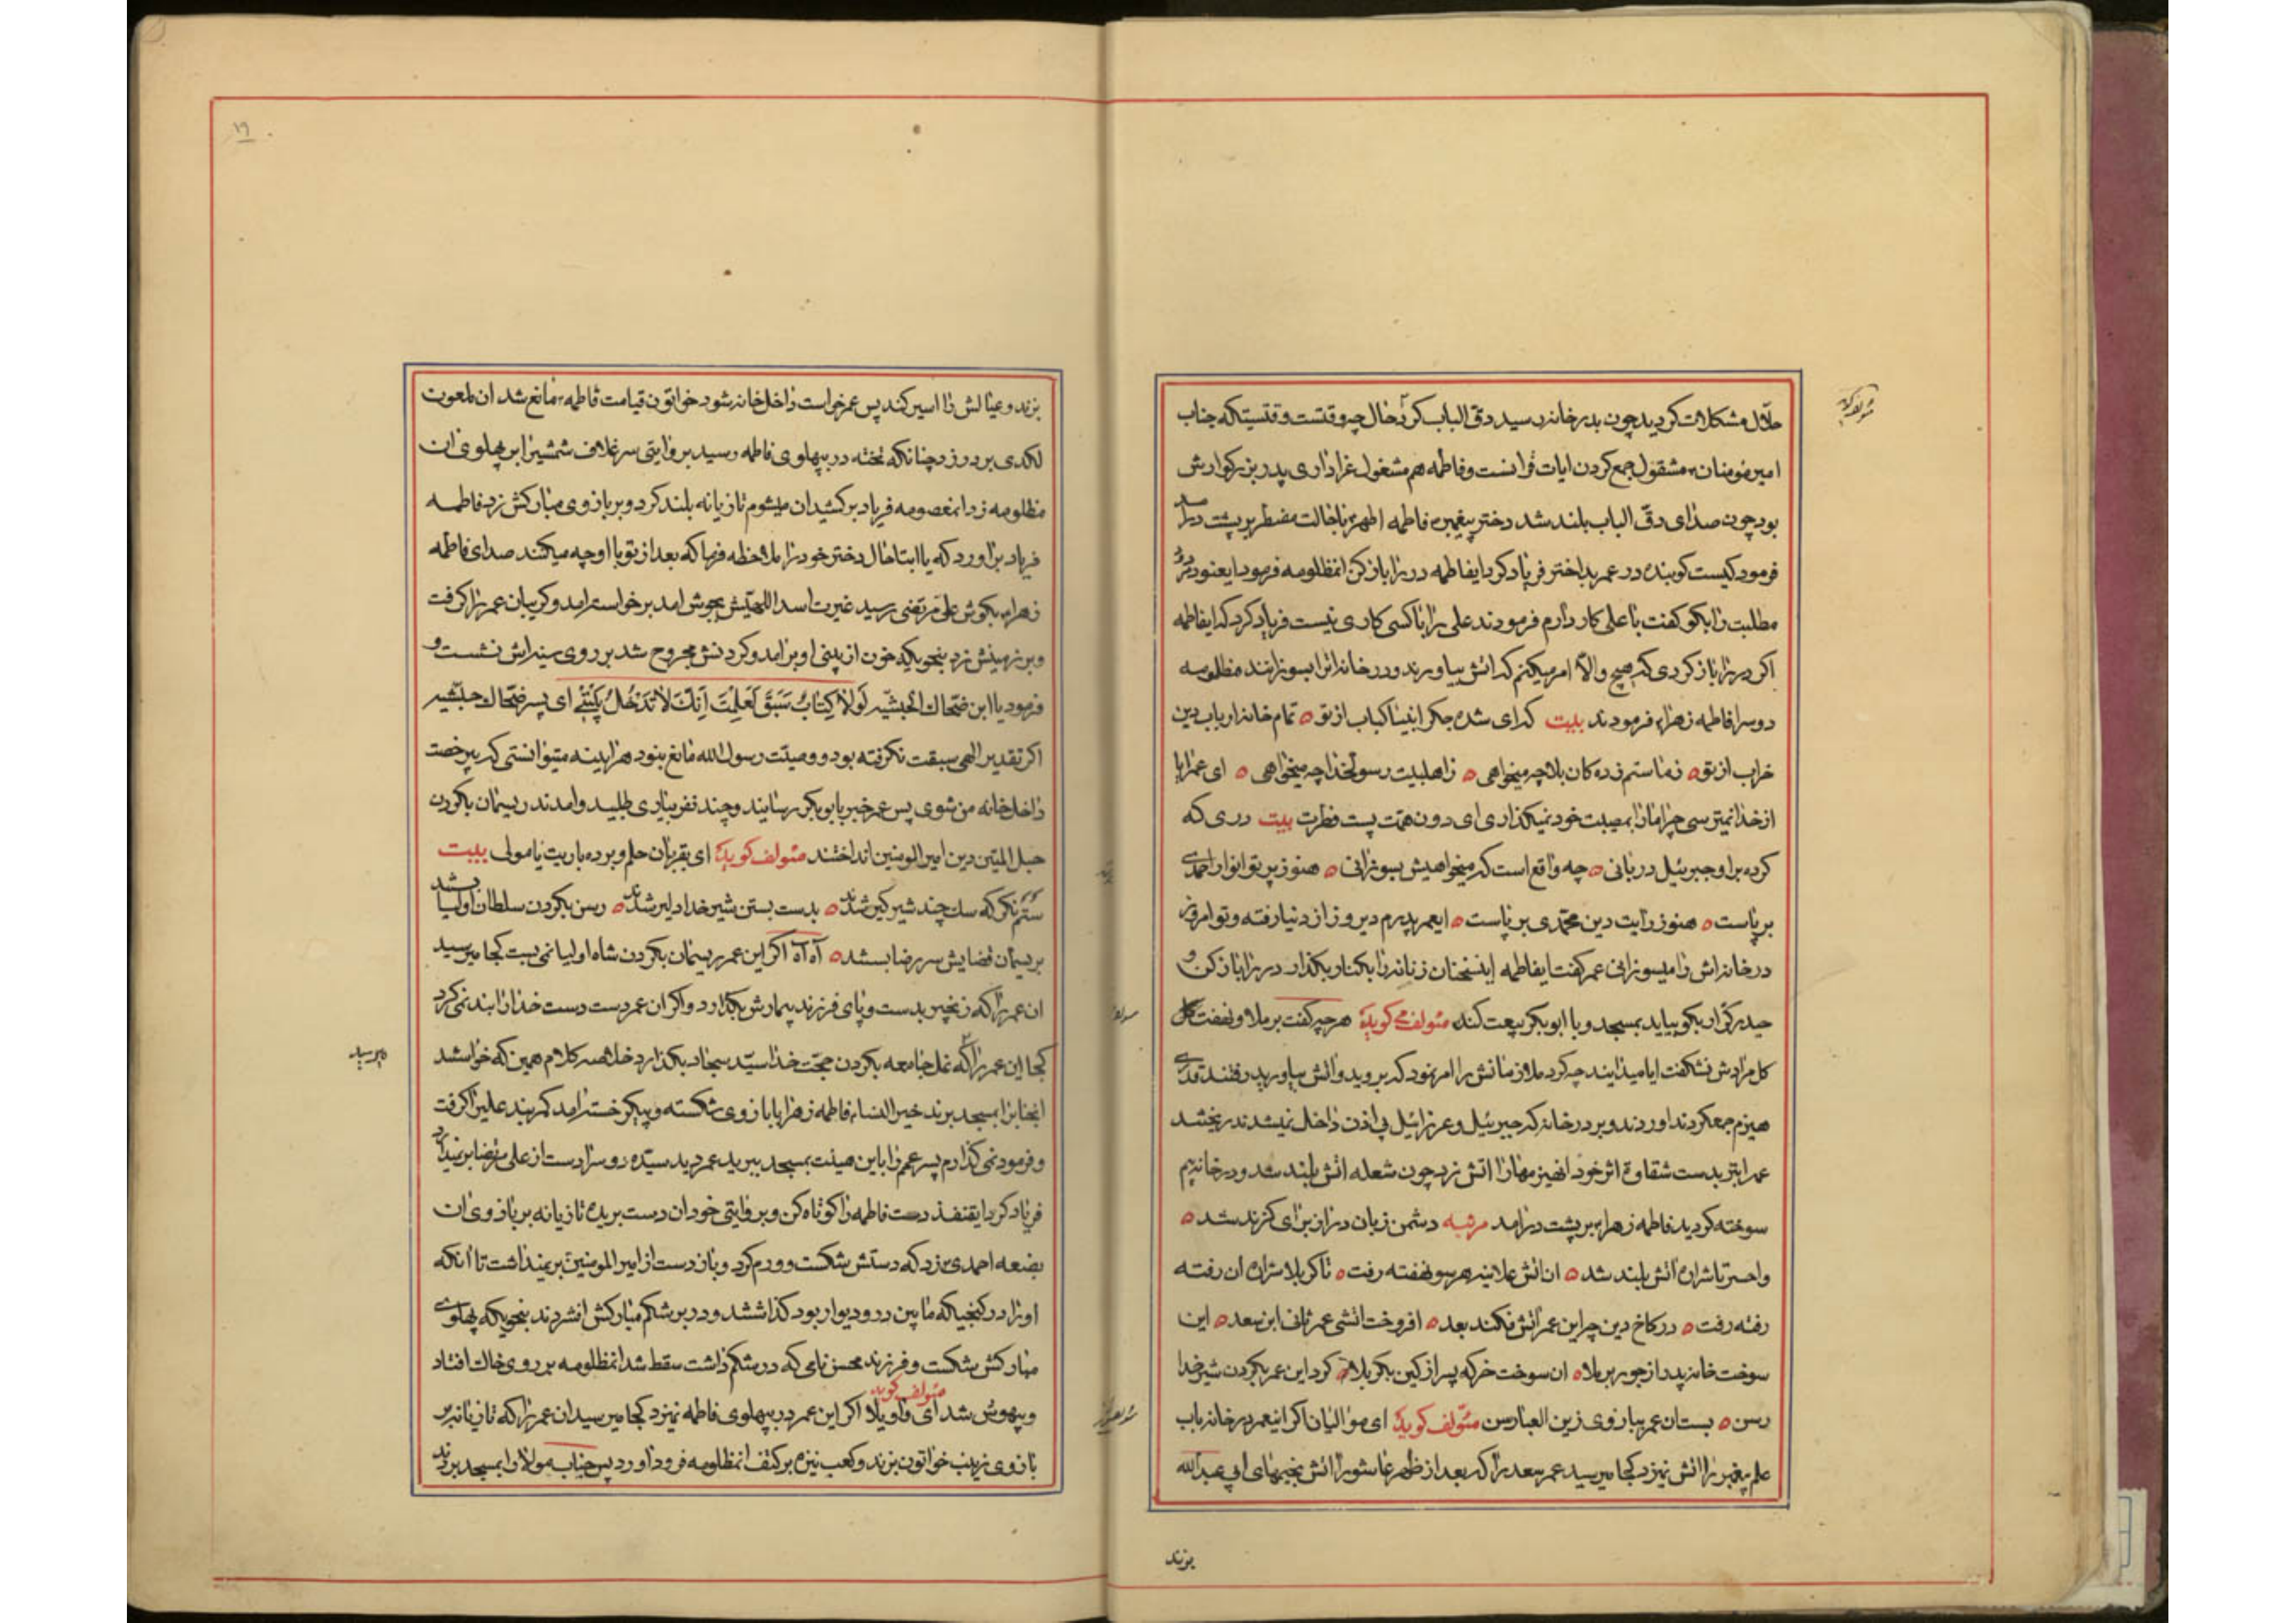 حلّال مشکلات کردید چون بدر خانه رسید دقّ الباب کرد حال چه وقتست وقتیستکه جناب
امیر مؤمنان مشقول جمع کردن ایات قرانست و فاطمه هم مشغول عزاداری پدر بزرکوارش
بود چون صدای دقّ الباب بلند شد دختر پیغمبر فاطمه اطهر باحالت مضطر بر پشت در امد
فرمود کیست کوبنده در عمر بداختر فریاد کرد ایفاطمه در را باز کن انمظلومه فرمود ایعنود مردود
مطلبت را بکو کفت با علی کار دارم فرمودند علی را با کسی کاری نیست فریاد کرد که ایفاطمه
اکر در را باز کردی که هیچ والّا امر میکنم که اتش بیاورند و در خانه انرا بسوزانند مظلومه
دوسرا فاطمه زهرا فرمودند بیت که ای شده جکر انبیا کباب از تو تمام خانه ارباب دین
خراب از تو ز ما ستم زده کان بلا چه میخواهی ز اهلبیت رسولخدا چه میخواهی ای عمر ایا
از خدا نمیترسی چرا مارا بمصیبت خود نمیکذاری ای دون همّت پست فطرت بیت دری که
کرده بر او جبرئیل دربانی چه واقع است که میخواهیش بسوزانی هنوز پرتو انوار احمدی
بر پاست هنوز رایت دین محمّدی بر پاست ایعمر پدرم دیروز از دنیا رفته و تو امروز
در خانه اش را میسوزانی عمر کفت ایفاطمه اینسخنان زنانه را بکنار بکذار در را باز کن و
حیدر کرّار بکو بیاید بمسجد و با ابوبکر بیعت کند مئولف کوید هر چه کفت برملا و نهفت کل
کل مرادش نشکفت ایا میدانید چه کرد ملازمانش را امر نمود که بروید و اتش بیاورید رفتند قدری
هیزم جمعکردند اوردند و بر در خانه که جبرئیل و عزرائیل بی اذن داخل نمیشدند ریختند
عمر ابتر بدست شقاوة اثر خود انهیزمهارا اتش زد چون شعله اتش بلند شد و در خانه نیم
سوخته کردید فاطمه زهرا بر پشت در امد مرثیه دشمن زبان دراز برای کزند شد
واحسرتا شراره اتش بلند شد ان اتش علانیه هر سو نهفته رفت تا کربلا شراره ان رفته
رفته رفت در کاخ دین چو این عمر اتش فکند بعد افروخت اتشی عمر ثانی ابن سعد این
سوخت خانه پدر از جور برملا ان سوخت خرکه پسر از کین بکربلا کرد این عمر بکردن شیر خدا
رسن بستان عمر ببازوی زین العباد رسن مئولف کوید ای موالیان اکر اینعمر در خانه باب
علم پیغمبر را اتش نمیزد کجا میرسید عمر سعد را که بعد از ظهر عاشورا اتش بخیمهای ابی عبدالله
بزند
۱۹
بزند و عیالش را اسیر کند پس عمر خواست داخل خانه شود خواتون قیامت فاطمه مانع شد ان ملعون
لکدی بر در زد چنانکه تخته در بپهلوی فاطمه رسید بروایتی سر غلاف شمشیر را بر پهلوی ان
مظلومه زد انمعصومه فریاد برکشید ان میشوم تازیانه بلند کرد و بر بازوی مبارکش زد فاطمه
فریاد براورد که یا ابتا حال دختر خود را ملاحظه فرما که بعد از تو با او چه میکنند صدای فاطمه
زهرا بکوش علی مرتضی رسید غیرت اسد اللهیّش بجوش امد برخواسته امد و کریبان عمر را کرفت
و بر زمینش زد بنحویکه خون از بینی او بر امد و کردنش مجروح شد بر روی سینه اش نشست و
فرمود یا ابن ضحّاك الحبشیّه لَولا کِتابٌ سَبَقَ لَعَلِمْتَ اِنَّكَ لا تَدْخُلُ بَیْتی ای پسر ضحّاك حبشیّه
اکر تقدیر الهی سبقت نکرفته بود و وصیّت رسول الله مانع نبود هراینه میتوانستی که بیرخصت
داخل خانه من شوی پس عمر خبر بابوبکر رسانید و چند نفر بیاری طلبید و امدند ریسمان بکردن
حبل المتین دین امیر المومنین انداختند مئولف کوید ای بقربان حلم و بردباریت یا مولی بیت
ستم نکر که سك چند شیر کیر شدند بدست بستن شیر خدا دلیر شدند رسن بکردن سلطان اولیا بشد
بریسمان قضایش سر رضا بسشد آه آه اکر این عمر ریسمان بکردن شاه اولیا نمی بست کجا میرسید
ان عمر را که زنجیر بدست و پای فرزند بیمارش بکذارد و اکر ان عمر دست دست خدا را بند نمی کرد
کجا این عمر را که غل جامعه بکردن حجّت خدا سیّد سجّاد بکذارد خلاصه کلام همین که خواستند
انجنابرا بمسجد برند خیر النساء فاطمه زهرا با بازوی شکسته و پیکر خسته امد کمربند علیرا کرفت
و فرمود نمی کذارم پسر عمم را باین هیئت بمسجد ببرید عمر دید سیّده دوسرا دست از علی مرتضی بر نمیدارد
فریاد کرد ایقنفذ دست فاطمه را کوتاه کن و بروایتی خود ان دست بریده تازیانه بر بازوی ان
بضعه احمدی زد که دستش شکست و ورم کرد و باز دست از امیر المومنین بر نمیداشت تا انکه
او را در کنجیکه مابین در و دیوار بود کذاشتند و در بر شکم مبارکش افشردند بنحویکه پهلوی
مبارکش شکست و فرزند محسن نامی که در شکم داشت سقط شد انمظلومه بر روی خاك افتاد
و بیهوش شد مئولف کوید ای واویلا اکر این عمر در بپهلوی فاطمه نمیزد کجا میرسید ان عمر را که تازیانه بر
بازوی زینب خواتون بزند و کعب نیزه بر کتف انمظلومه فرود اورد پس جناب مولا را بمسجد بردند
میرسید